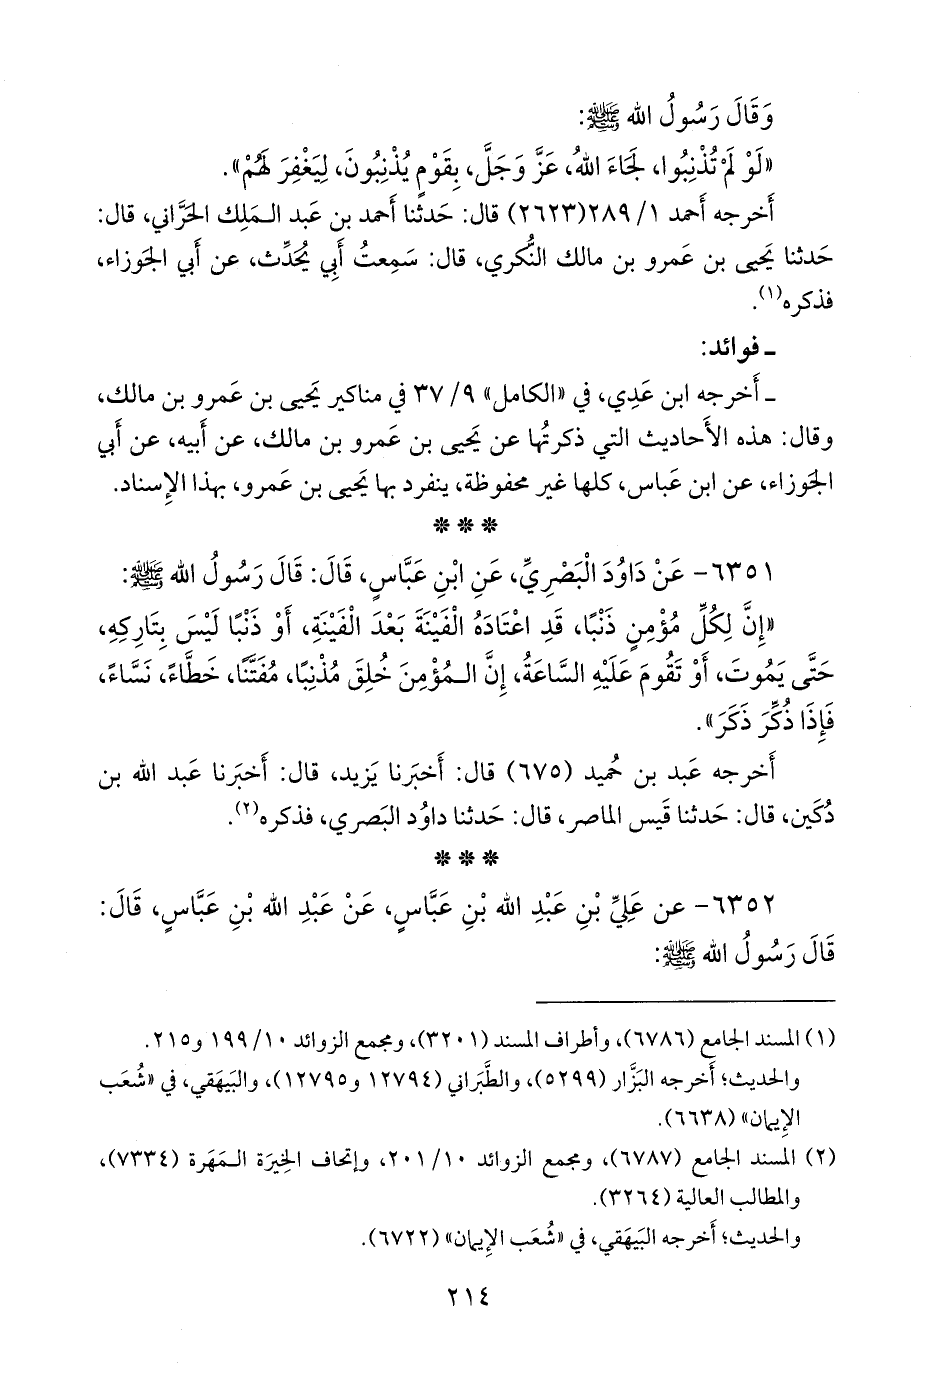 وَقَالَ رَسُولُ الله ﷺ:
«لَوْ لَمْ تُذْنِبُوا، لَجَاءَ اللهُ، عَزَّ وَجَلَّ، بِقَوْمٍ يُذْنِبُونَ، لِيَغْفِرَ لَهُمْ».
أَخرجه أَحمد ١/ ٢٨٩(٢٦٢٣) قال: حَدثنا أَحمد بن عَبد الـمَلِك الحَرَّاني، قال:
حَدثنا يَحيى بن عَمرو بن مالك النُّكري، قال: سَمِعتُ أَبِي يُحَدِّث، عن أَبي الجَوزاء،
فذكره(١).
ـ فوائد:
ـ أَخرجه ابن عَدِي، في «الكامل» ٩/ ٣٧ في مناكير يَحيى بن عَمرو بن مالك،
وقال: هذه الأَحاديث التي ذكرتُها عن يَحيى بن عَمرو بن مالك، عن أَبيه، عن أَبي
الجَوزاء، عن ابن عَباس، كلها غير محفوظة، ينفرد بها يَحيى بن عَمرو، بهذا الإِسناد.
***
٦٣٥١- عَنْ دَاوُدَ الْبَصْرِيِّ، عَنِ ابْنِ عَبَّاسٍ، قَالَ: قَالَ رَسُولُ الله ﷺ:
«إِنَّ لِكُلِّ مُؤْمِنٍ ذَنْبًا، قَدِ اعْتَادَهُ الْفَيْنَةَ بَعْدَ الْفَيْنَةِ، أَوْ ذَنْبًا لَيْسَ بِتَارِكِهِ،
حَتَّى يَمُوتَ، أَوْ تَقُومَ عَلَيْهِ السَّاعَةُ، إِنَّ الـمُؤْمِنَ خُلِقَ مُذْنِبًا، مُفَتَّنًا، خَطَّاءً، نَسَّاءً،
فَإِذَا ذُكِّرَ ذَكَرَ».
أَخرجه عَبد بن حُميد (٦٧٥) قال: أَخبَرنا يَزيد، قال: أَخبَرنا عَبد الله بن
دُكَين، قال: حَدثنا قَيس الماصر، قال: حَدثنا داوُد البَصري، فذكره(٢).
***
٦٣٥٢- عن عَلِيِّ بْنِ عَبْدِ الله بْنِ عَبَّاسٍ، عَنْ عَبْدِ الله بْنِ عَبَّاسٍ، قَالَ:
قَالَ رَسُولُ الله ﷺ:
(١) المسند الجامع (٦٧٨٦)، وأطراف المسند (٣٢٠١)، ومجمع الزوائد ١٠/ ١٩٩ و٢١٥.
والحديث؛ أَخرجه البَزَّار (٥٢٩٩)، والطَّبَراني (١٢٧٩٤ و١٢٧٩٥)، والبَيهَقي، في «شُعَب
الإِيمان» (٦٦٣٨).
(٢) المسند الجامع (٦٧٨٧)، ومجمع الزوائد ١٠/ ٢٠١، وإتحاف الخِيرَة الـمَهَرة (٧٣٣٤)،
والمطالب العالية (٣٢٦٤).
والحديث؛ أَخرجه البَيهَقي، في «شُعَب الإِيمان» (٦٧٢٢).
٢١٤